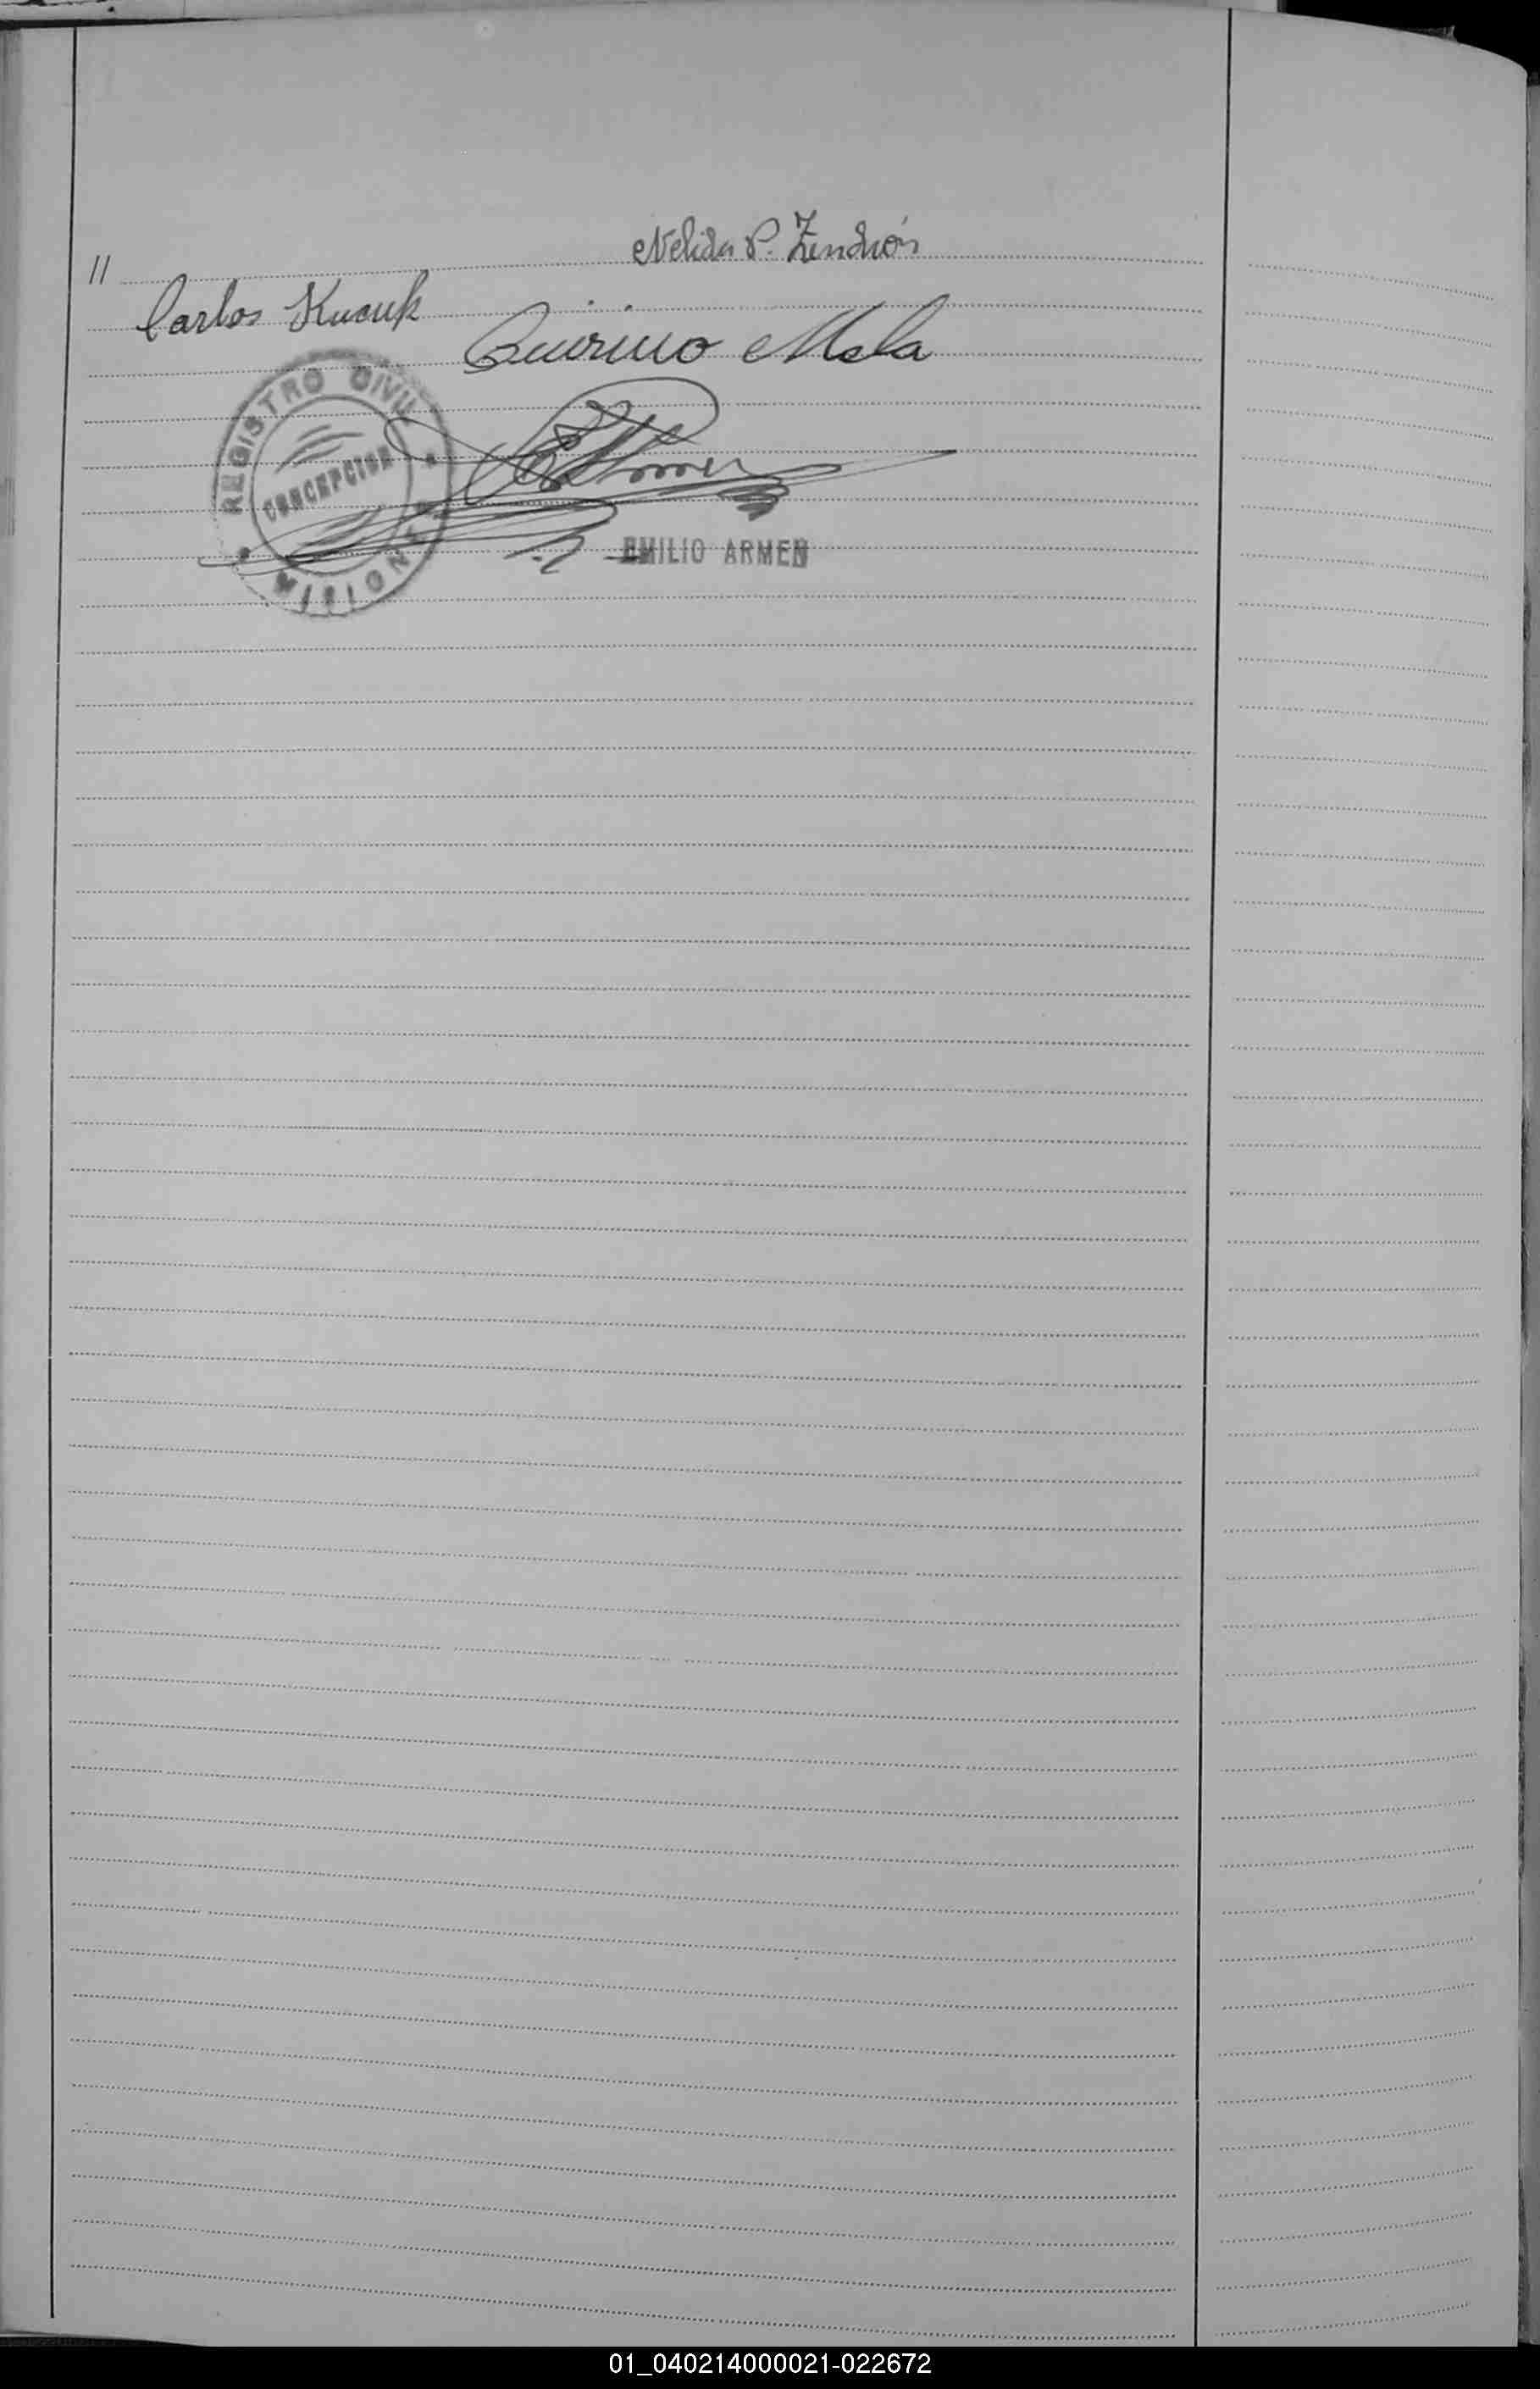 Nelida P. Zendrón
//
Carlos Kucuk
Quirino Mela
REGISTRO CIVIL
CONCEPCION
MISIONES
EMILIO ARMEN
01_040214000021-022672